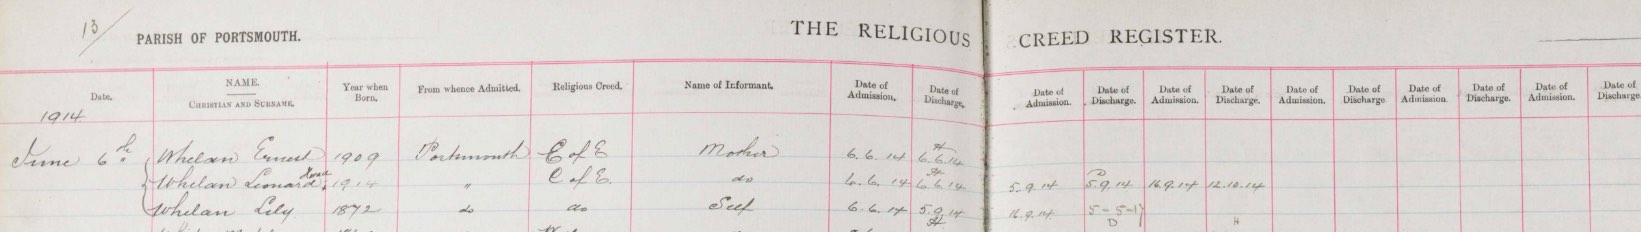 13/
PARISH OF PORTSMOUTH.
THE RELIGIOUS CREED REGISTER.
Date. NAME. CHRISTIAN AND SURNAME. Year when Born. From whence Admitted. Religious Creed. Name of Informant. Date of Admission. Date of Discharge. Date of Admission. Date of Discharge. Date of Admission. Date of Discharge. Date of Admission. Date of Discharge Date of Admission. Date of Discharge. Date of Admission. Date of Discharge
1914
June 6th Whelan Ernest 1909 Portsmouth C of E Mother 6.6.14 H 6.6.14
Whelan Leonard Horace 1914 " C of E. do 6.6.14 H 6.6.14 5.9.14 D 5.9.14 16.9.14 12.10.14
Whelan Lily 1872 do do Self 6.6.14 5.9.14 H 16.9.14 5-5-17 D H